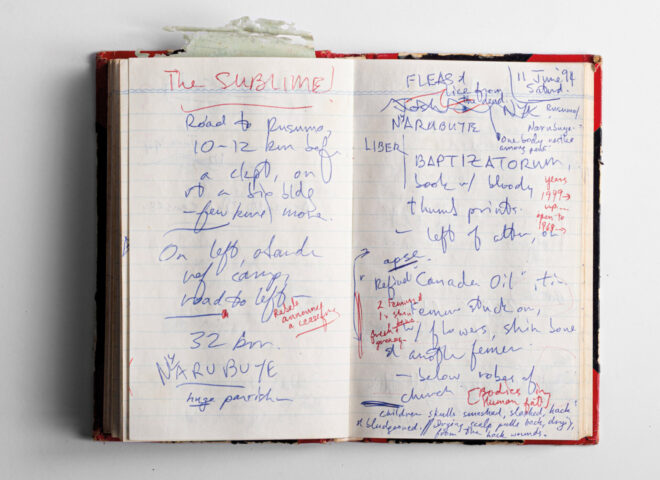 The SUBLIME
Road to Rusumo,
10-12 km
a clept, on
rt a big bldg
- few km more.
On left,
ref camp,
road to left -
Rebels
announce
a ceasefire
32 km.
NYARUBUYE
huge parish -
FLEAS &
lice from
dead
11 June 94
Saturd.
NYARUBUYE
Rusumo/
Narubuye -
one body
among
LIBER
BAPTIZATORUM,
book w/ bloody
thumb prints.
years
1999 →
up...
open to
1969 →
- left of altar, on
apse.
Refined "Canada Oil", tin
2 removed
1 shin
femur stuck on,
w/ flowers, shin bone
& another femur.
- below robes of
church
[Bodies in
human
children skulls smashed, slashed, hack
& bludgeoned. // Drying scalp pulls back, dry,
from the hack wounds.